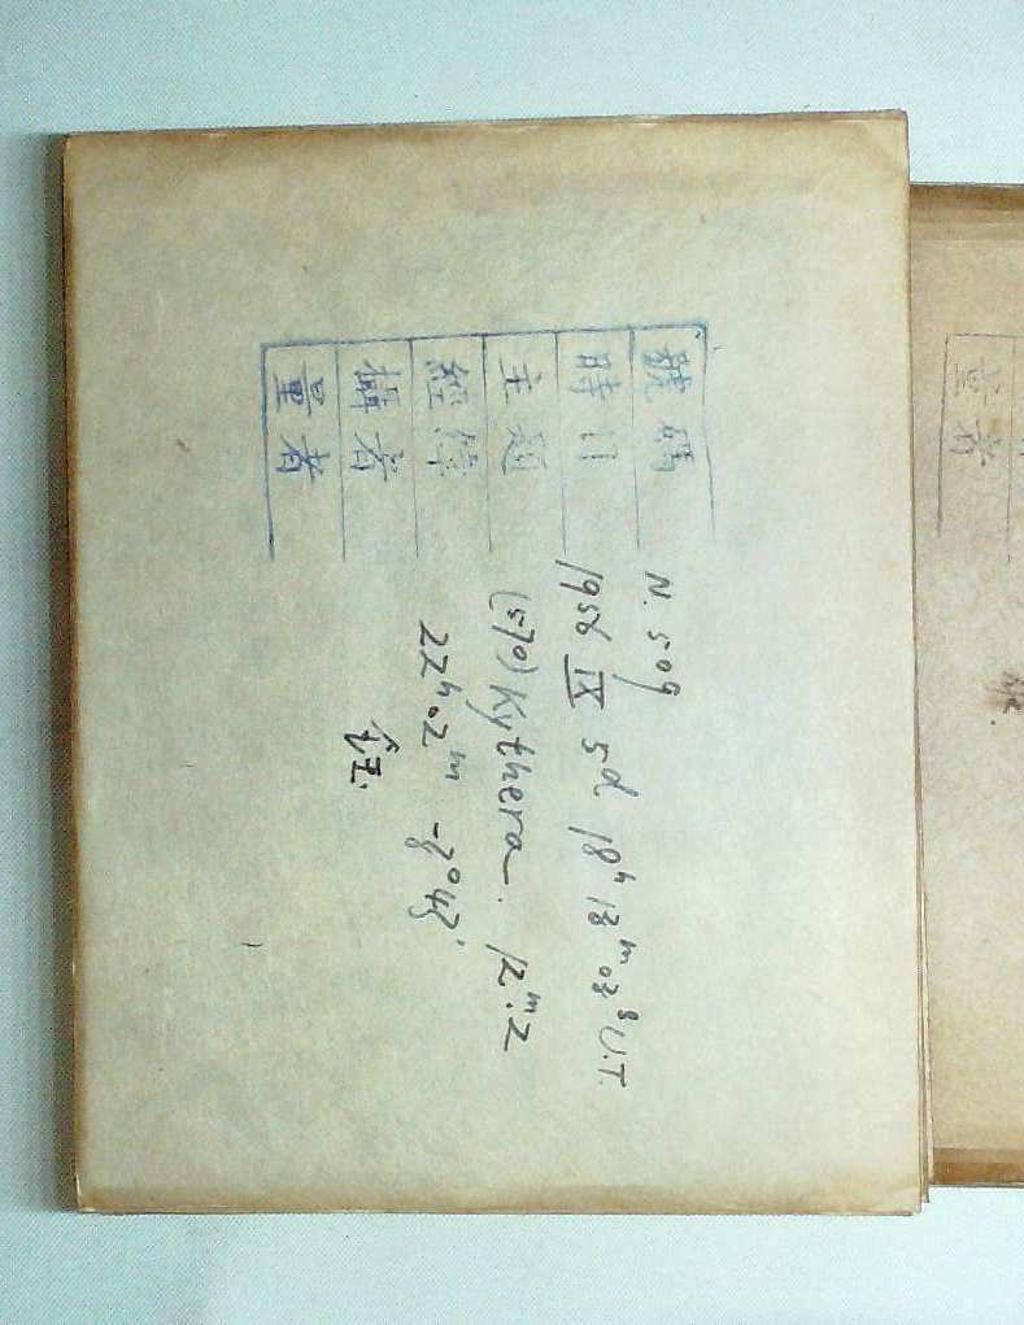 號碼 N. 509
時日 1956 IX 5d 18h 13m 03s U.T.
主題 (570) Kythera. 12m.2
經緯 22h02m -3°43'
攝者
量者
量者